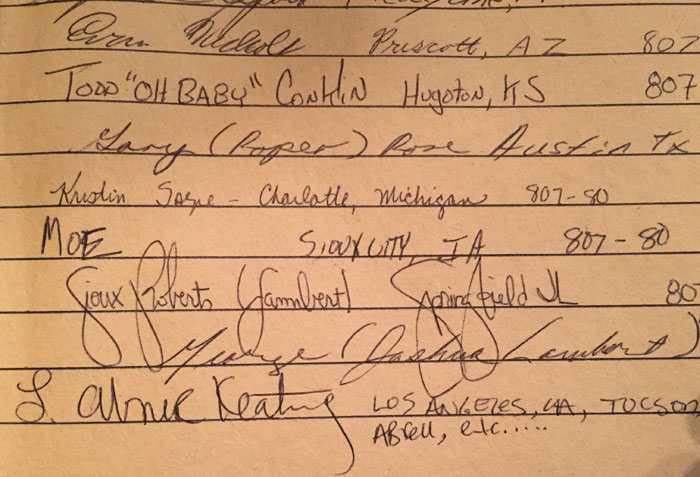 Nichols Prescott, AZ 807
TODD "OH BABY" CONKLIN HUGOTON, KS 807
Gary (Roper) Rose Austin TX
Kristin - Charlotte, Michigan 807-80
MOE SIOUX CITY, IA 807-80
Sioux Roberts (Jammbert) Springfield IL 80
George (Joshua Lambert)
L. Abner Keating LOS ANGELES, CA, TUCSON
etc.....